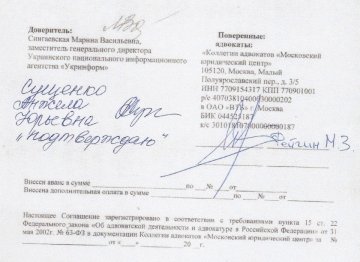 Доверитель:
Сингаевская Марина Васильевна,
заместитель генерального директора
Украинского национального информационного
агентства «Укринформ»
Сущенко
Анжела
Юрьевна
"подтверждаю"
Поверенные:
адвокаты:
«Коллегия адвокатов «Московский
юридический центр»
105120, Москва, Малый
Полуярославский пер., д. 3/5
ИНН 7709154317 КПП 770901001
р/с
в ОАО «ВТБ» г. Москва
БИК
к/с
Фейгин М.З.
Внесен аванс в сумме по № от
Внесена дополнительная оплата в сумме по № от
Настоящее Соглашение зарегистрировано в соответствии с требованиями пункта 15 ст. 22
Федерального закона «Об адвокатской деятельности и адвокатуре в Российской Федерации» от 31
мая 2002г. № 63-ФЗ в документации Коллегии адвокатов «Московский юридический центр» за
№ от « » 20 г.